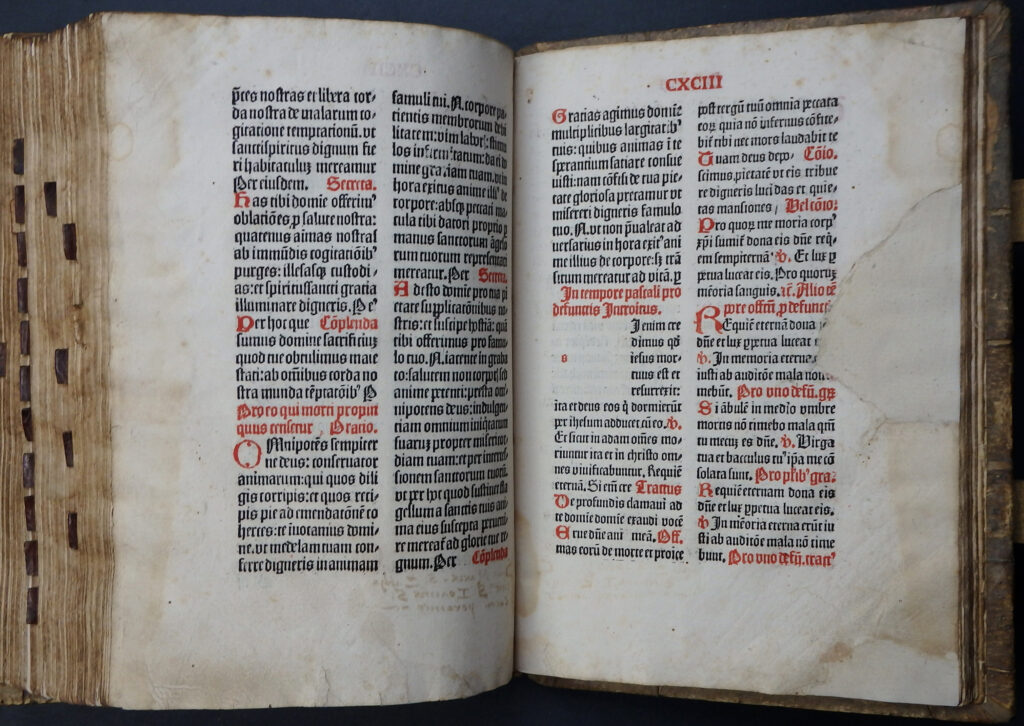 p̄ces nostras et libera cor-
da nostra de malarum co-
gitatione temptationū. vt
sancti spiritus dignum fie
ri habitaculū mereamur
Per eiusdem. Secreta.
Has tibi domie offerim⁹
oblatiōes ꝓ salute nostra:
quatenus aīmas nostras
ab immūdis cogitatiōib⁹
purges: illesasqꝫ custodi-
as: et spiritussancti gracia
illuminare digneris. Pe⁹
Per hoc que Cōplenda
sumus domine sacrificiū
quod tue obtulimus maie
stati: ab omībus corda no
stra munda tēptatōib⁹ P
Pro eo qui morti propin
quus censetur Oratio.
OMnipotēs sempiter
ne deus: conseruator
animarum: qui quos dili
gis corripis: et quos reci-
pis pie ad emendatōnē co
herces: te inuocamus domi-
ne. vt medelam tuam con-
ferre digneris in animam
famuli tui. N. corpore pa-
tientis membrorum debi
litatem: vim laboris: stimu
los infirmitatum: da ei do
mine gratiam tuam. vt in
hora exitus anime illi⁹ de
corpore: absqꝫ peccati ma
cula tibi datori proprio ꝑ
manus sanctorum āgelo
rum tuorum representari
mereatur. Per Secreta.
Adesto domie pro tua pi
etate supplicationibus no
stris: et suscipe hostiā: quā
tibi offerimus pro famu
lo tuo. N. iacente in graba
to: salutem non corporis sed
anime petenti: presta om
nipotens deus: indulgen
tiam omnium iniquitatum
suarū propter misericor
diam tuam: et per interces
sionem sanctorum tuorū.
vt per hoc quod sustinet fla
gellum a sanctis tuis ani
ma eius suscepta peruenī
re mereat ad glorie tue re
gnum. Per Cōplenda
CXCIII
Gratias agimus domīe
multiplicibus largitatib⁹
tuis: quibus animas ī te
sperantium satiare consue
uisti: nam cōfisi de tua pie
tate gloriosa precamur vt
misereri digneris famulo
tuo. N. vt non p̄ualeat ad
uersarius in hora exit⁹ ani
me illius de corpore: sꝫ trā
situm mereatur ad vitā. ꝑ
In tempore pascali pro
defunctis Introitus.
s
I enim cre
dimus qđ
iesus mor-
tuus est et
resurrexit:
ita et deus eos q̇ dormierūt
per ihesum adducet cū eo. ℣.
Et sicut in adam oīnes mo-
riuntur ita et in christo om-
nes viuificabuntur. Requiē
eternā. Si em̄ cre Tractus
De profundis clamaui ad
te domie domie exaudi vocē
Erue dn̄e ani meā. Off.
mas eorū de morte et proice
post tergū tuū omnia peccata
eoꝝ quia nō infernus cōfite-
bit̄ tibi nec mors laudabit te
Tuam deus depo- Cōio.
scimus pietatē vt eis tribue
re digneris lucidas et quie-
tas mansiones, Vel cōio.
Pro quoꝝ memoria corp⁹
xp̄i sumit̄ dona eis dn̄e reqꝫ
em sempiternā ℣. Et lux ꝑ
petua luceat eis. Pro quoruꝫ
mēoria sanguis. ⁊c. Alio tē
pore offm̄ ꝓ defunct
REquiē eternā dona
dn̄e et lux ꝑpetua luceat
℣. In memoria eterna
iusti ab auditōe mala non
mebūt. Pro vno defū. gꝝ
Si ābulē in medīo vmbre
mortis nō timebo mala qm̄
tu mecū es dn̄e. ℣. Virga
tua et baculus tu⁹ ip̄a me cō
solata sunt. Pro plib⁹ gra.
Requiē eternam dona eis
dn̄e et lux ꝑpetua luceat eis.
℣ In mēoria eterna erūt iu
sti ab auditōe mala nō time
bunt. Pro vno defū. tract⁹